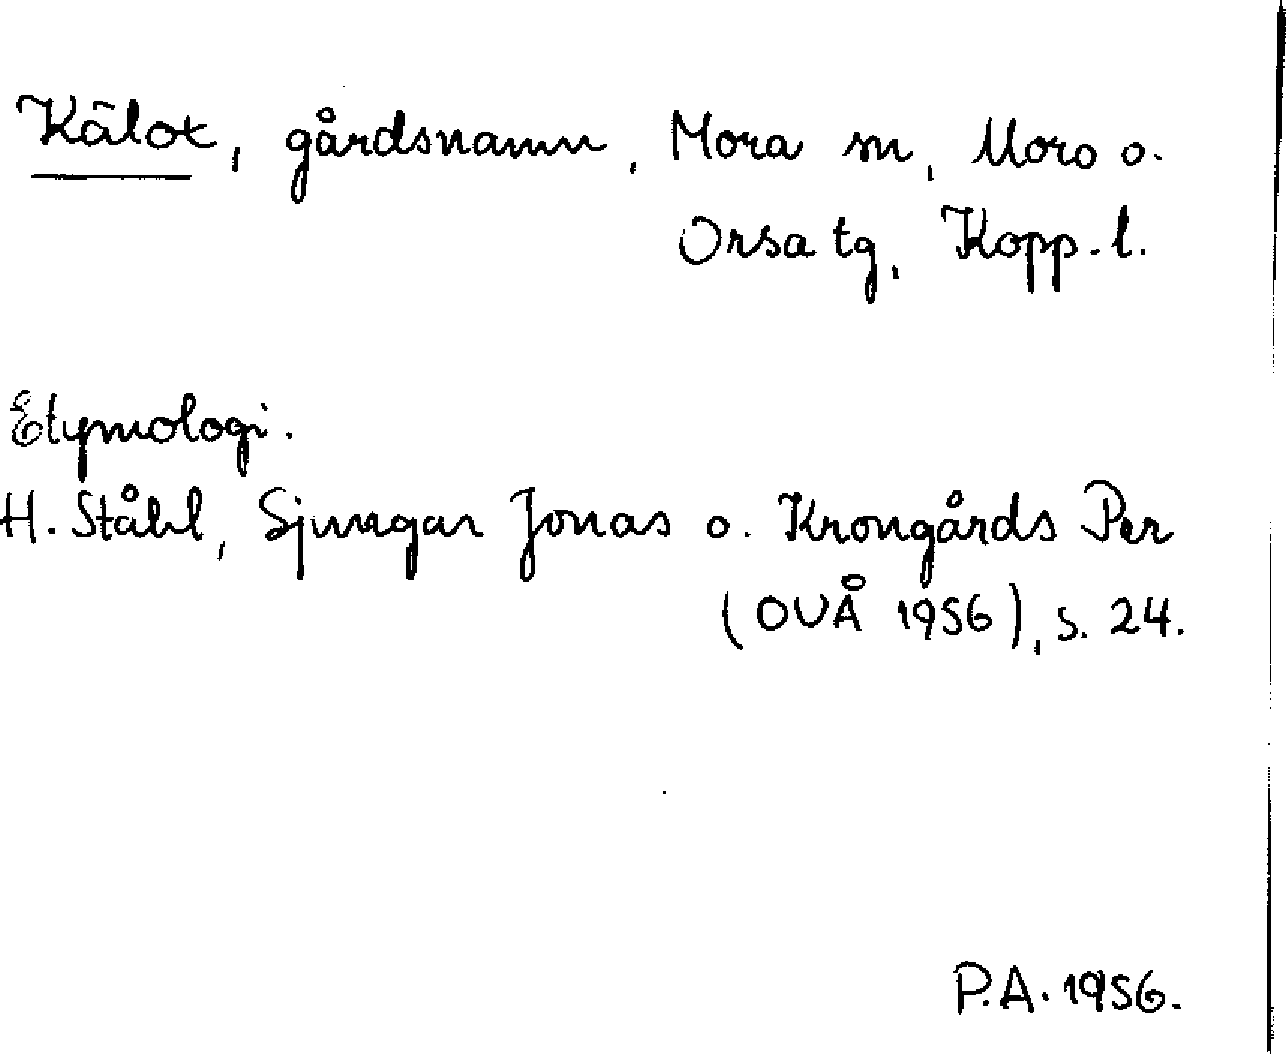 Kälot, gårdsnamn, Mora sn, Mora o.
Orsa tg, Kopp. l.
Etymologi.
H. Ståhl, Sjungar Jonas o. Krongårds Per
(OUÅ 1956), s. 24.
P.A. 1956.